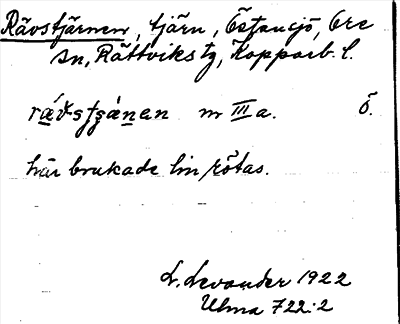 Rävstjärnen, tjärn, Östansjö, Ore
sn, Rättviks tg, Kopparb. l.
rä́vstjä́nen m III a. ö.
här brukade lin rötas.
L. Levander 1922
Ulma 722:2